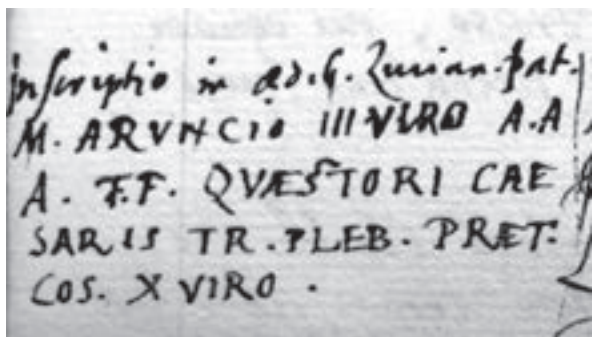 Inscriptio in æd. G. Zurian. pat.
M. ARVNCIO III VIRO A.A
A. F.F. QVÆSTORI CAE
SARIS TR. PLEB. PRÆT.
COS. X VIRO .